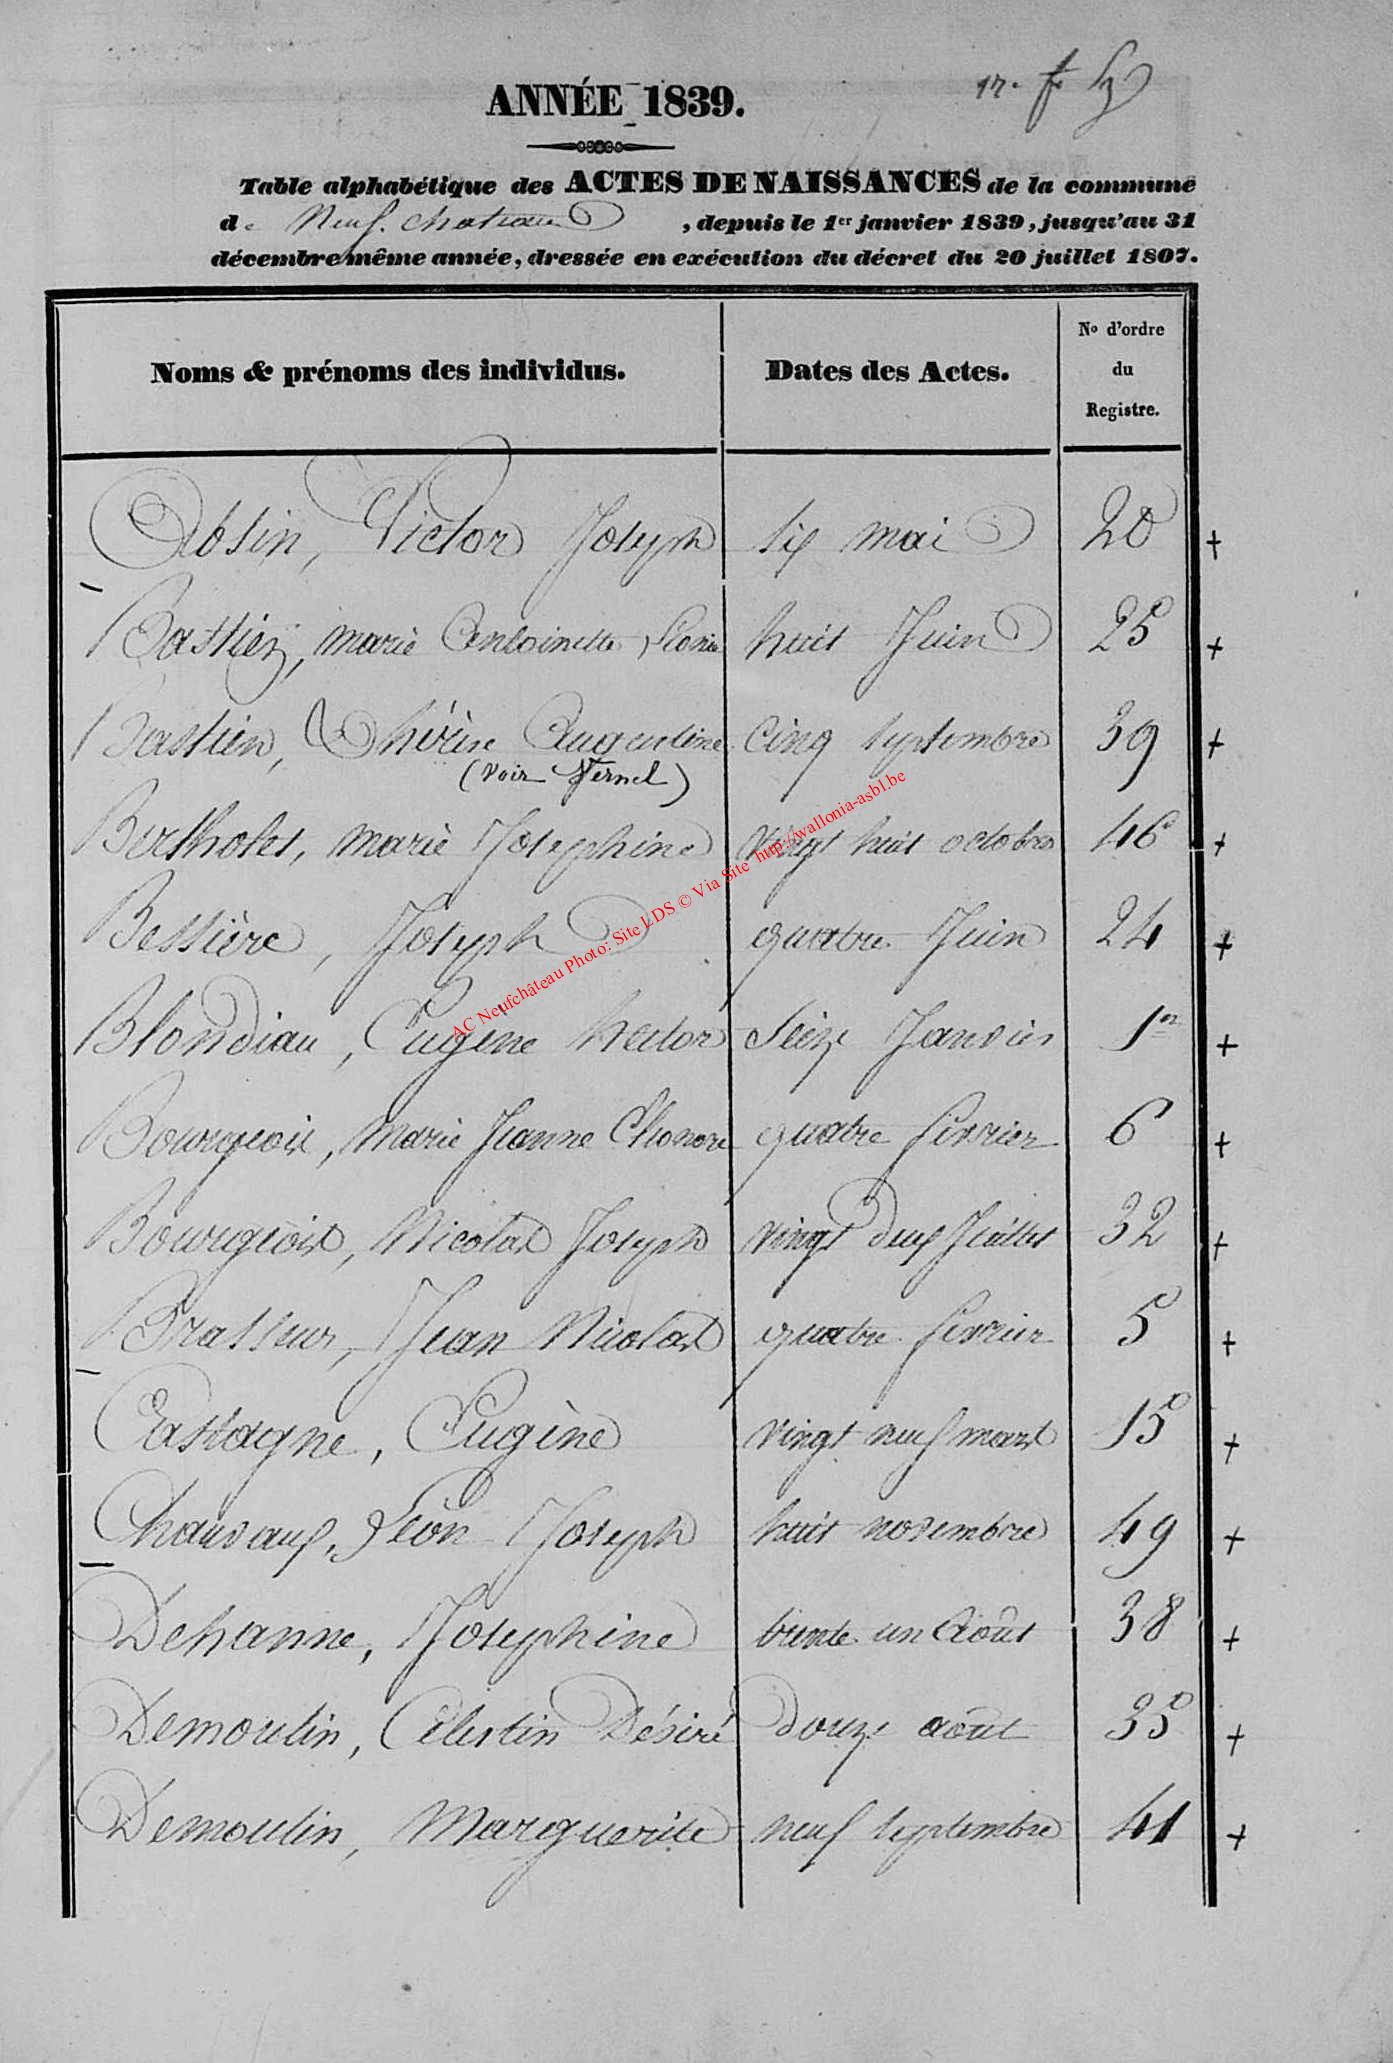 ANNÉE 1839.
Table alphabétique des ACTES DE NAISSANCES de la commune
de Neufchateau, depuis le 1er janvier 1839, jusqu'au 31
décembre même année, dressée en exécution du décret du 20 juillet 1807.
Noms & prénoms des individus. Dates des Actes. No d'ordre du Registre.
Absin, Victor Joseph six mai 20 +
Bastien, marie Antoinette huit Juin 25 +
Bastien, Thérèse Augustine cinq septembre 39 +
(voir Fernel)
Bertholet, marie Josephine vingt huit octobre 46 +
Bessière, Joseph quatre Juin 24 +
Blondiau, Eugène hector Seize Janvier 1er +
Bourgeois, Marie Jeanne quatre fevrier 6 +
Bourgeois, Nicolas Joseph vingt deux Juillet 32 +
Brasseur, Jean Nicolas quatre fevrier 5 +
Castagne, Eugène vingt neuf mars 15 +
Chauvaux, Léon Joseph huit novembre 49 +
Dehanne, Josephine trente un Août 38 +
Demoulin, Célestin Désiré douze août 35 +
Demoulin, Marguerite neuf septembre 41 +
AC Neufchâteau Photo: Site LDS © Via Site http://wallonia-asbl.be